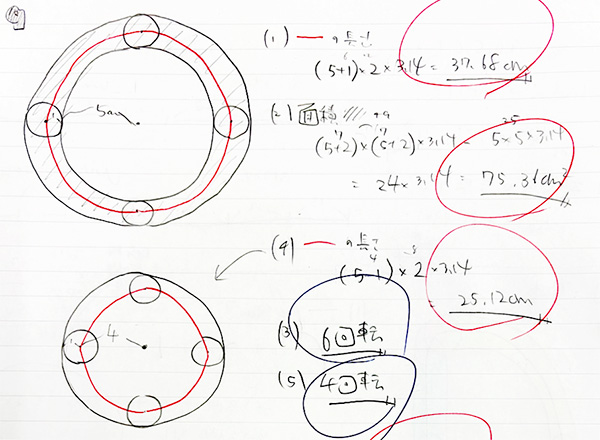 5cm
(1) ― の長さ
(5+1)×2×3.14 = 37.68cm
(2) 面積
(5+2)×(5+2)×3.14 - 5×5×3.14
25
= 24×3.14 = 75.36cm²
(4) ― の長さ
(5-1)×2×3.14
= 25.12cm
4
(3) 6回転
(5) 4回転